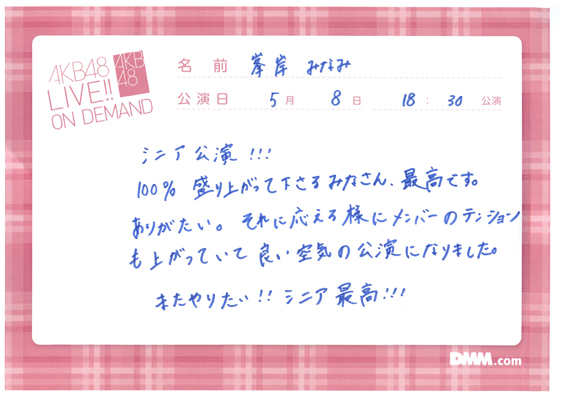 AKB48
LIVE!!
ON DEMAND
AKB
48
名 前 峯岸 みなみ
公演日 5月 8日 18:30 公演
シニア公演!!!
100% 盛り上がって下さるみなさん、最高です。
ありがたい。それに応える様にメンバーのテンション
も上がっていて良い空気の公演になりました。
またやりたい!!シニア最高!!!
DMM.com